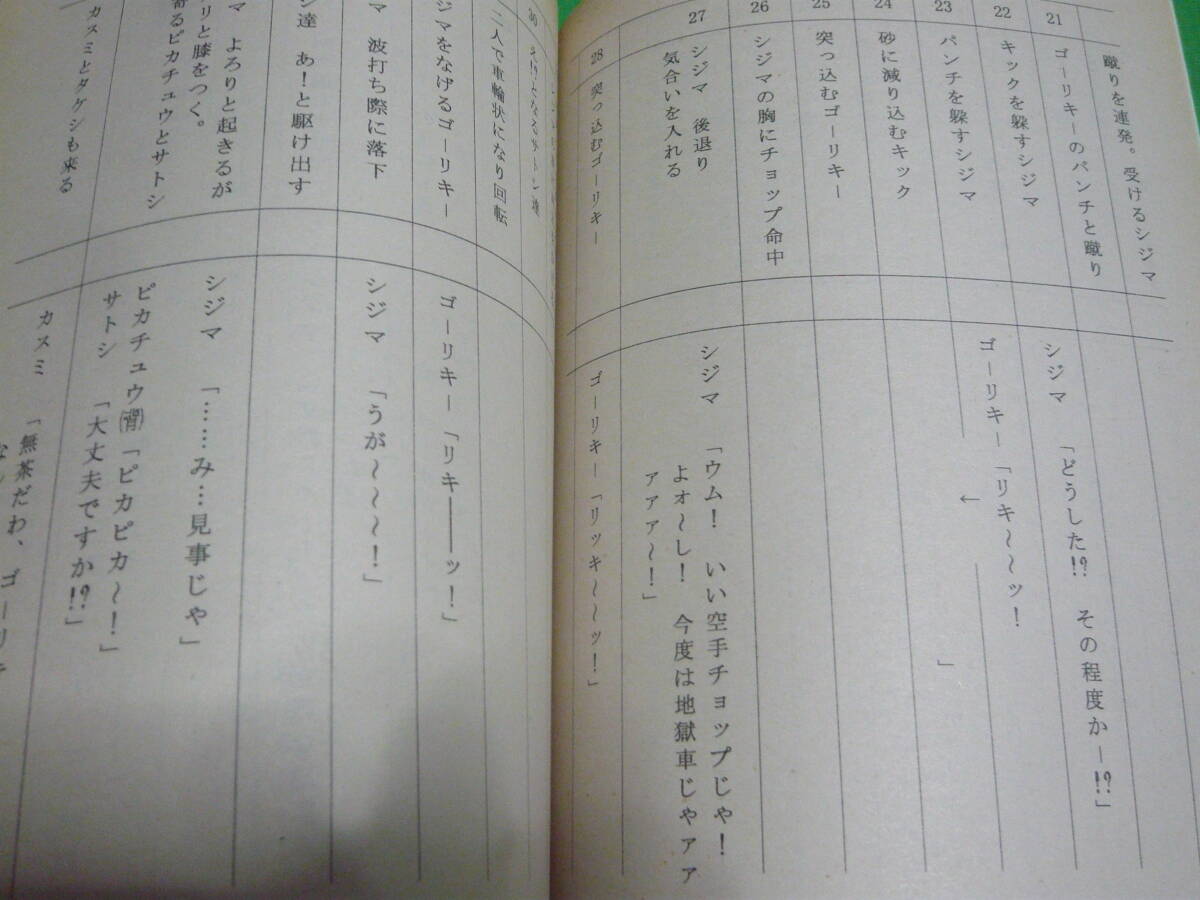 蹴りを連発。受けるシジマ
21
ゴーリキーのパンチと蹴り
シジマ 「どうした!? その程度かー!?」
22
キックを躱すシジマ
ゴーリキー「リキ〜〜ッ!
23
パンチを躱すシジマ
←
24
砂に減り込むキック
」
25
突っ込むゴーリキー
26
シジマの胸にチョップ命中
27
シジマ 後退り
気合いを入れる
シジマ 「ウム! いい空手チョップじゃ!
よォ〜し! 今度は地獄車じゃァァ
ァァァ〜!」
28
突っ込むゴーリキー
ゴーリキー「リッキ〜〜ッ!」
30
サトシ達
二人で車輪状になり回転
ジマをなげるゴーリキー
ゴーリキー「リキ――ッ!」
マ 波打ち際に落下
シジマ 「うが〜〜〜!」
シ達 あ!と駆け出す
マ よろりと起きるが
リと膝をつく。
シジマ 「……み…見事じゃ」
寄るピカチュウとサトシ
ピカチュウ㈳「ピカピカ〜!」
サトシ 「大丈夫ですか!?」
カスミとタケシも来る
カスミ 「無茶だわ、ゴーリキ